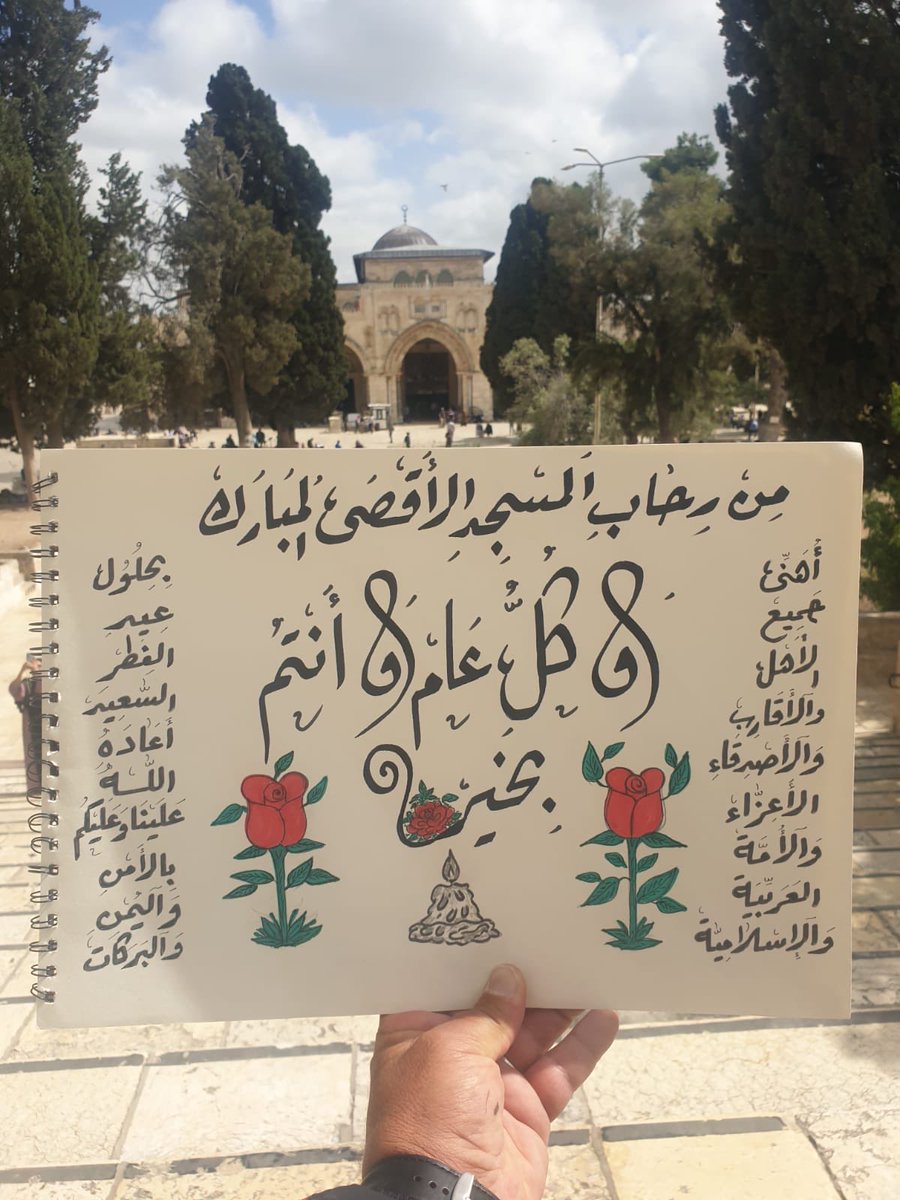 مِنْ رِحَابِ المَسْجِدِ الأَقْصَى المُبَارَك
أُهَنِّئ
جَمِيع
الأَهْل
وَالأَقَارِب
وَالأَصْدِقَاءِ
الأَعِزَّاء
وَالأُمَّة
العَرَبِّيَة
وَالإِسْلَامِيَّة
وَكُلُّ عَام وَأَنتُم
بِخَيْر
بِحُلُول
عِيدِ
الفِطْر
السَّعِيد
أَعَادَهُ
اللَّهُ
عَلَيْنَا وَعَلَيْكُم
بِالأَمْنِ
وَاليُمْنِ
وَالبَرَكَات